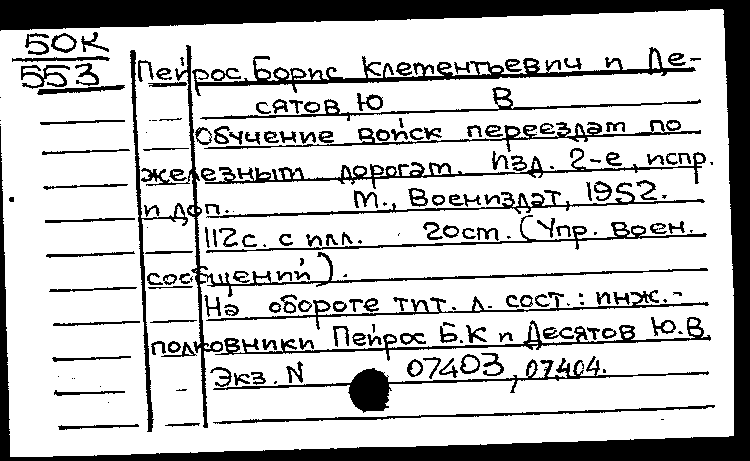 50К
553
Пейрос, Борис Клементьевич и Де-
сятов, Ю В
Обучение войск переездам по
железным дорогам. Изд. 2-е, испр.
и доп. М., Воениздат, 1952.
112с. с илл. 20см. (Упр. воен.
сообщений).
На обороте тит. л. сост.: инж.-
полковники Пейрос Б.К и Десятов Ю.В.
Экз. N 07403, 07404.